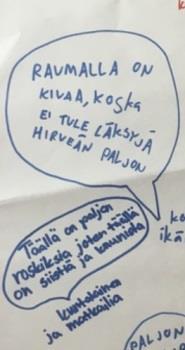 RAUMALLA ON
KIVAA, KOSKA
EI TULE LÄKSYJÄ
HIRVEÄN PALJON
Täällä on paljon
roskiksia joten täällä
on siistiä ja kaunista
kuntolainen
ja matkailia
ko
ikä
PALJON